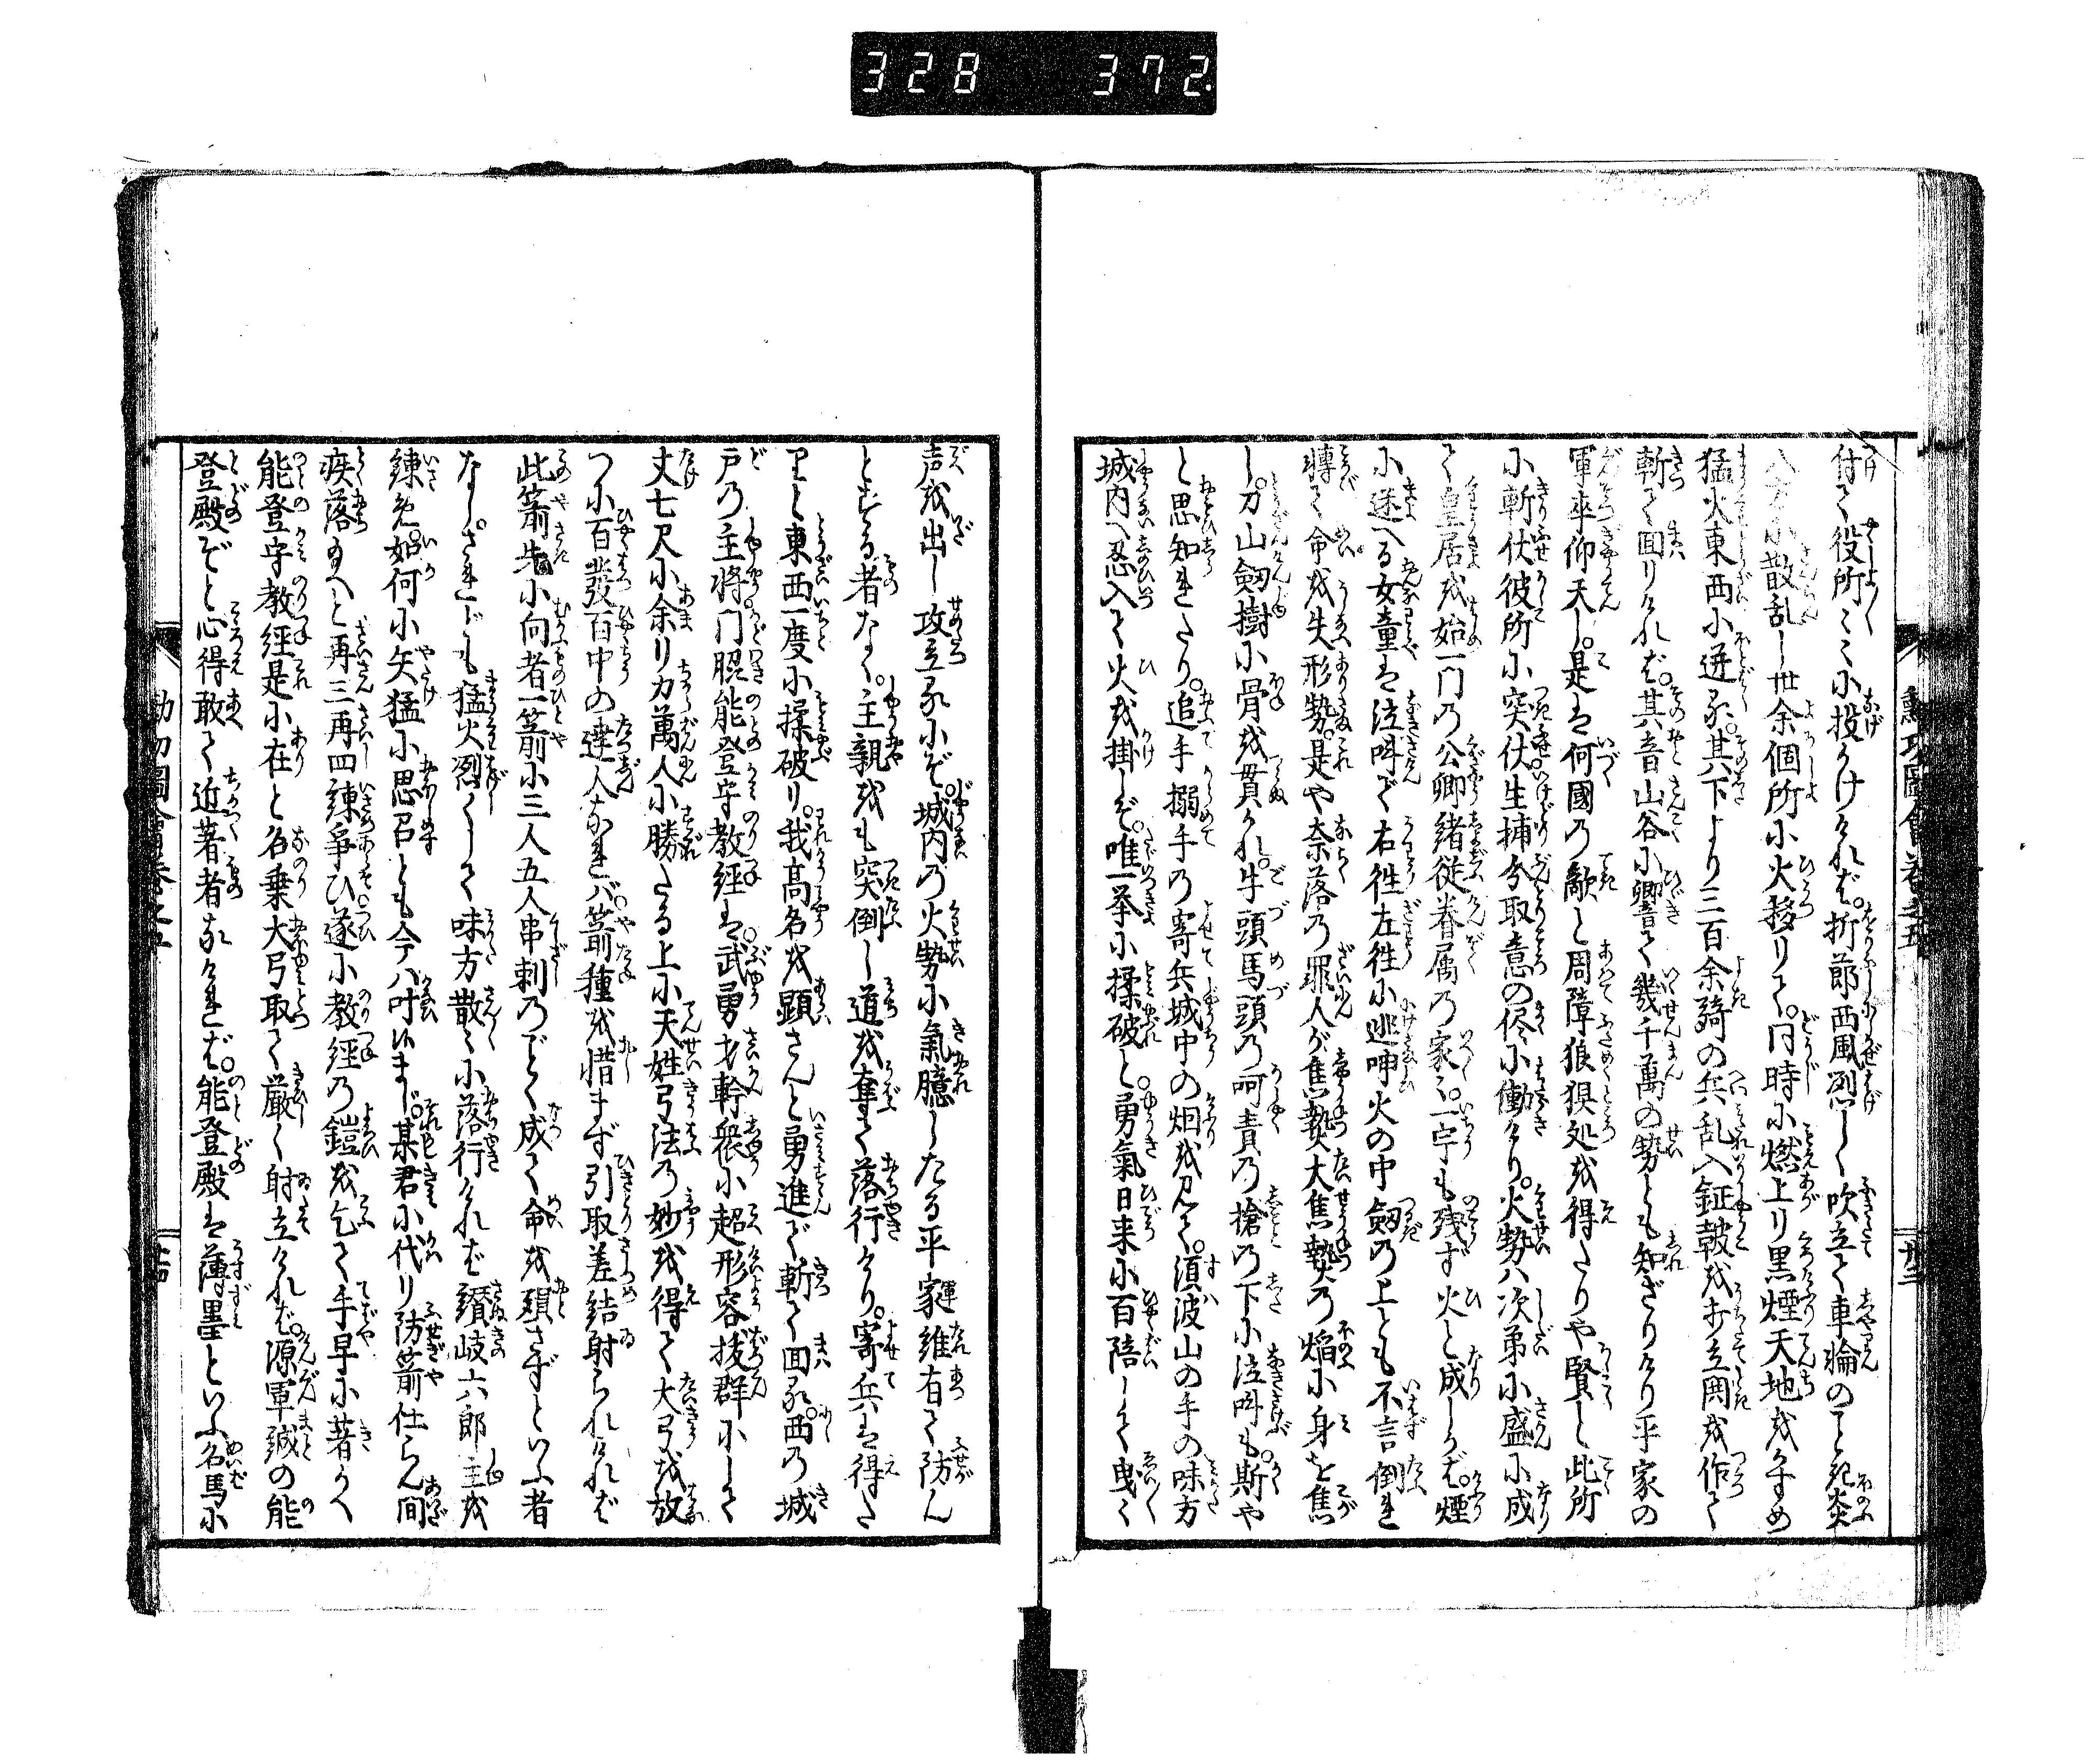 328 372
付て役所〻〻に投かけければ。折節西風烈しく吹立て車輪のごとき炎
散乱し世余個所に火移りて。同時に燃上り黒煙天地をかすめ
猛火東西に迸る。其下より三百余騎の兵乱入鉦鼓を打立鬨を作て
斬て回りければ。其音山谷に響て幾千萬の勢とも知ざりけり平家の
軍卒仰天し。是は何國の敵と周障狼狽処を得たりや賢しと此所
に斬仗彼所に突仗生捕分取意の侭に働けり。火勢ハ次第に盛に成
て皇居を始一門の公卿緒従眷属の家〻。一宇も残す火と成しかば。煙
に迷へる女童は泣叫で右徃左徃に逃呻火の中劔の上とも不言倒れ
轉て命を失形勢。是や奈落の罪人が焦熱大焦熱の焔に身を焦
し。刀山劔樹に骨を貫かれ。牛頭馬頭の呵責の搶の下に泣叫も。斯や
と思知れたり。追手搦手の寄兵城中の烟を見て。須波山の手の味方
城内へ忍入て火を掛しぞ。唯一挙に揉破と。勇氣日来に百陪しく曳〻
声を出し攻立るにぞ。城内の火勢に氣臆したる平家運維有て防ん
とする者なく。主親をも突倒し道を奪て落行けり。寄兵は得た
りと東西一度に揉破り。我高名を顕さんと勇進で斬て回る。西の城
戸の主將門脇能登守教経は。武勇才幹衆に超形容抜群にして
丈七尺に余り力萬人に勝たる上に天姓弓法の妙を得て大弓を放
つに百發百中の達人なれバ。箭種を惜まず引取差結射られければ
此箭先に向者一箭に三人五人串刺のごとく成て命を損さずといふ者
なし。されども猛火烈くして味方散〻に落行ければ讃岐六郎主を
諫免。如何に矢猛に思召とも今ハ叶いまじ。某君に代り防箭仕らん間
疾落給へと再三再四諫爭ひ。遂に教經の鎧を乞て手早に著かへ
能登守教経是に在と名乗大弓取て厳く射立ければ。源軍誠の能
登殿ぞと心得敢て近著者なければ。能登殿は薄墨といふ名馬に